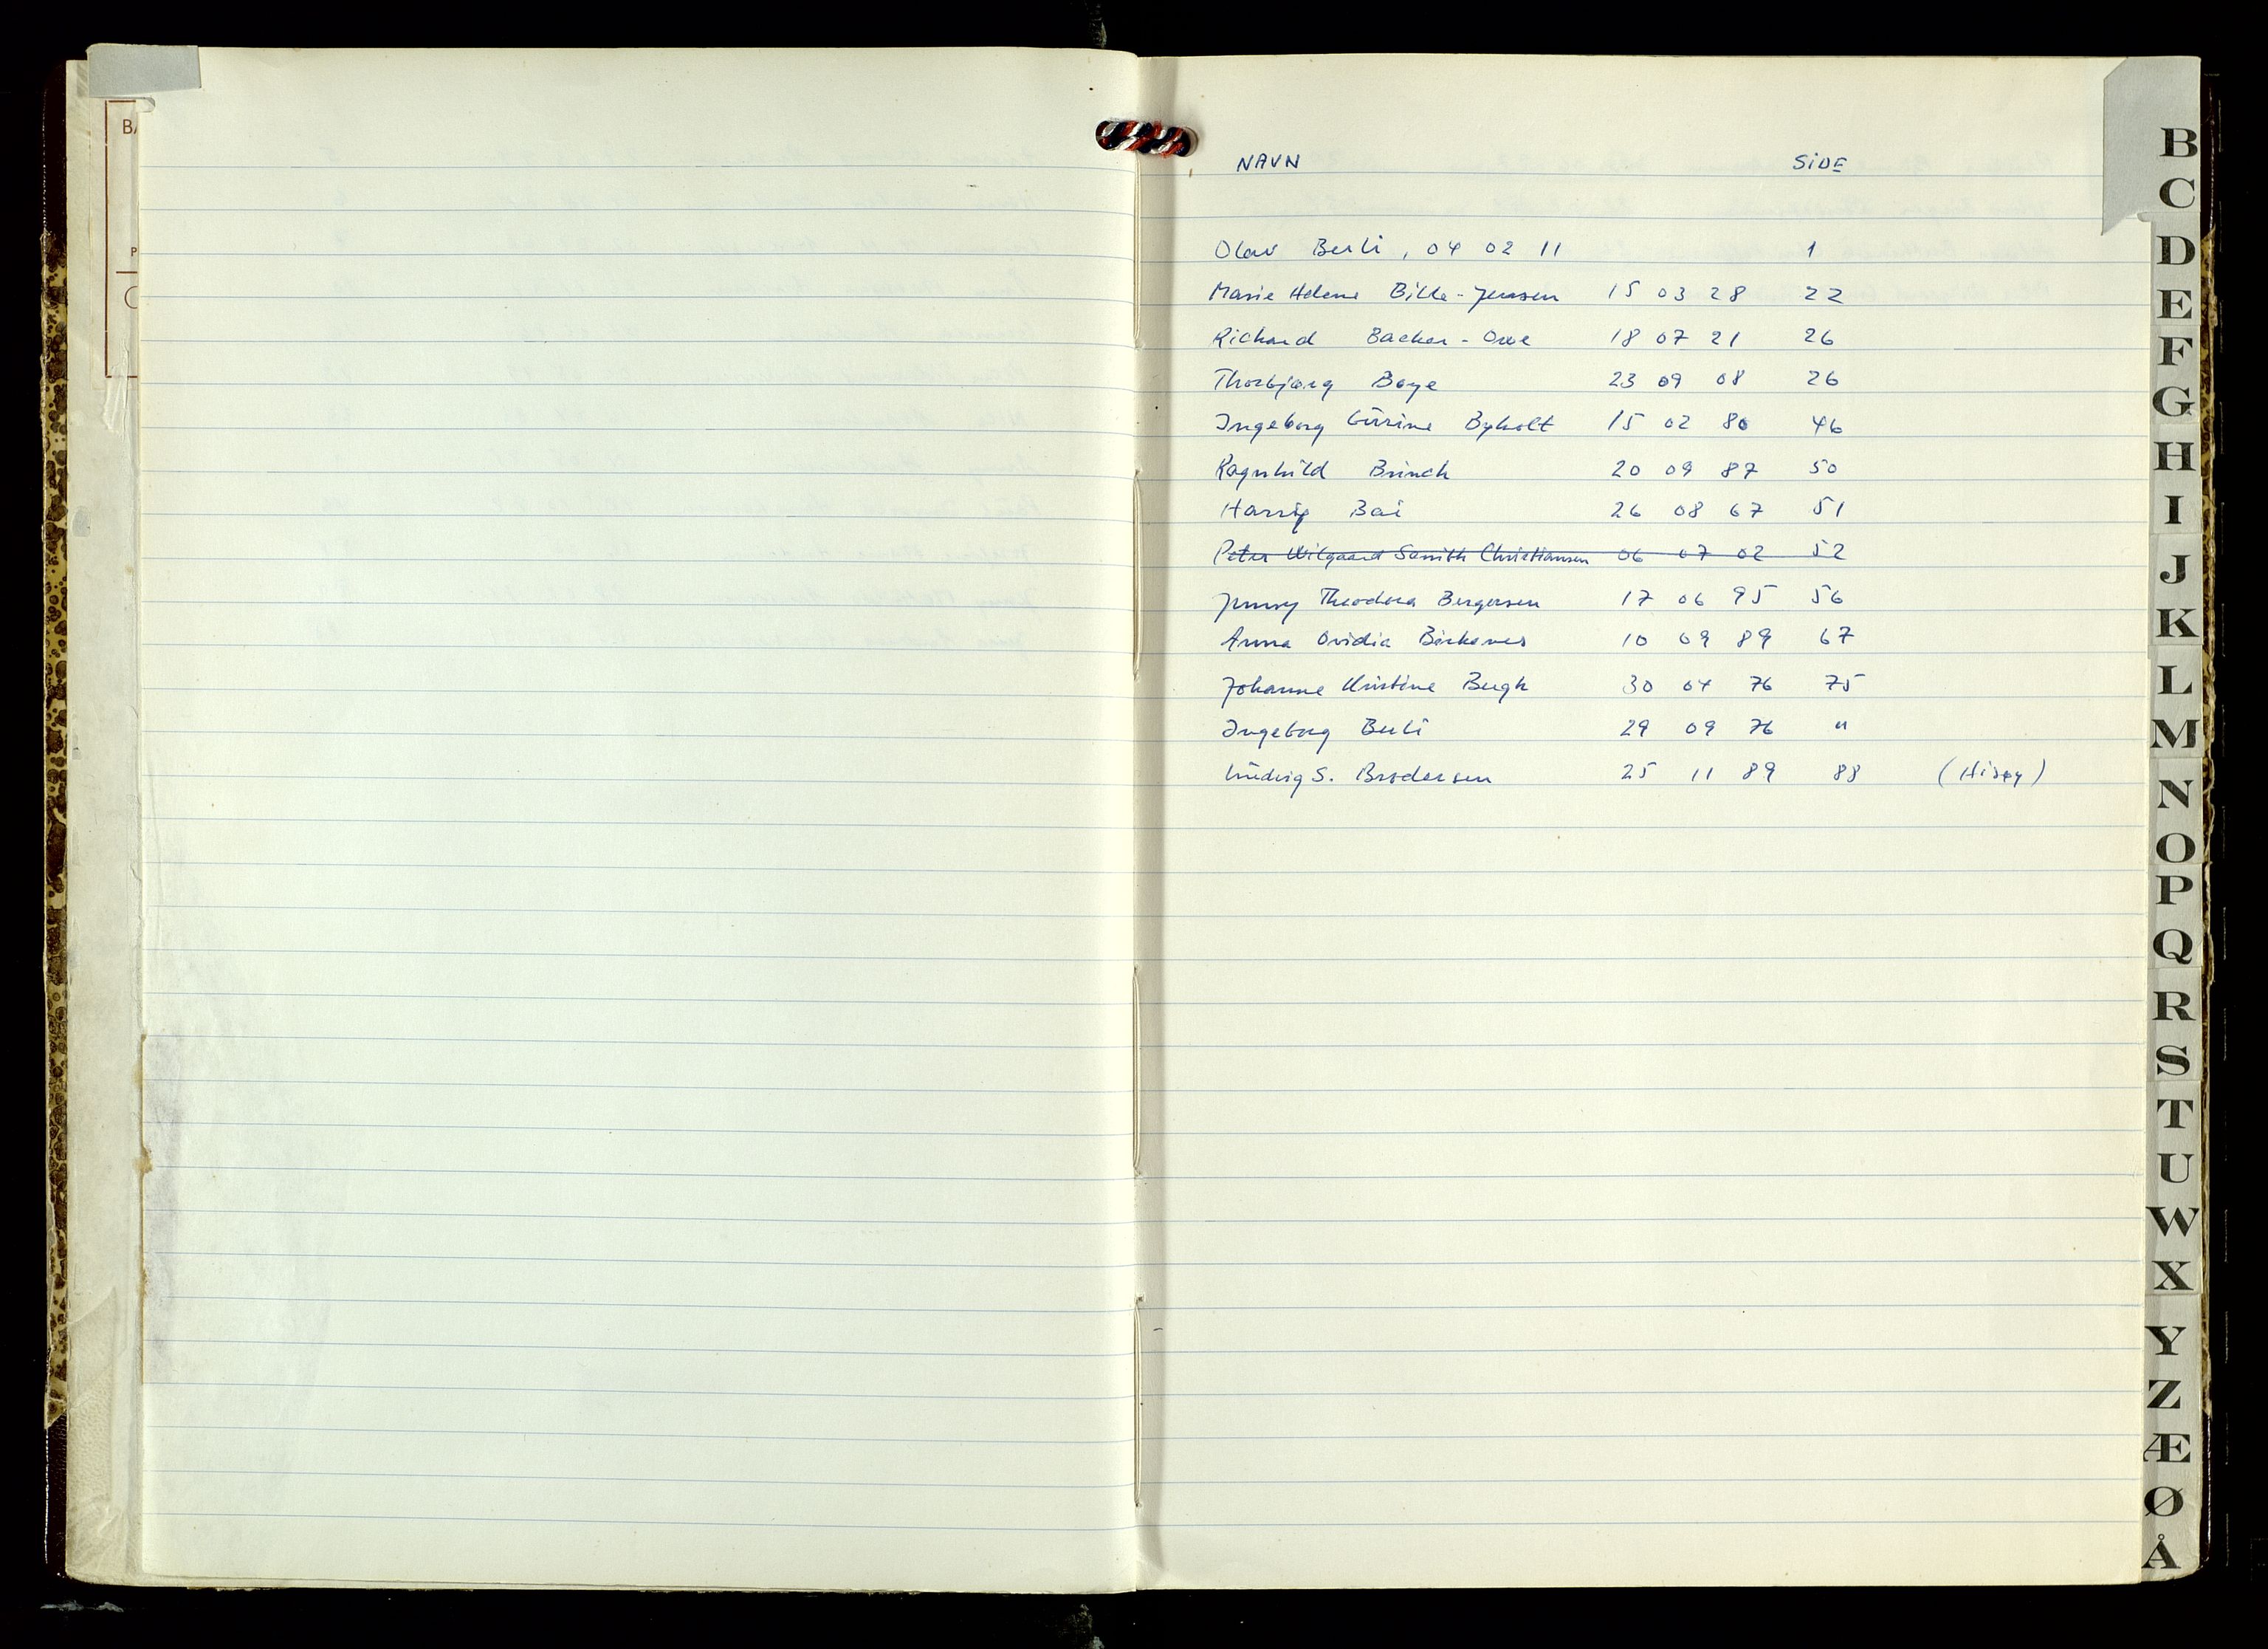 BA
P
NAVN SIDE
Olav Berli, 04 02 11 1
Marie Helene Bille-Jensen 15 03 28 22
Richard Backer-Owe 18 07 21 26
Thorbjørg Bøye 23 09 08 26
Ingeborg Gurine Byholt 15 02 80 46
Ragnhild Brinch 20 09 87 50
Harrig Bai 26 08 67 51
Peter Wilgaard Smith Christiansen 06 07 02 52
Jenny Theodora Bergersen 17 06 95 56
Anna Ovidia 10 09 89 67
Johanne Kristine Bergh 30 04 76 75
Ingeborg Berli 29 09 76 "
Ludvig S. Brodersen 25 11 89 88 (Hisøy)
B
C
D
E
F
G
H
I
J
K
L
M
N
O
P
Q
R
S
T
U
W
X
Y
Z
Æ
Ø
Å